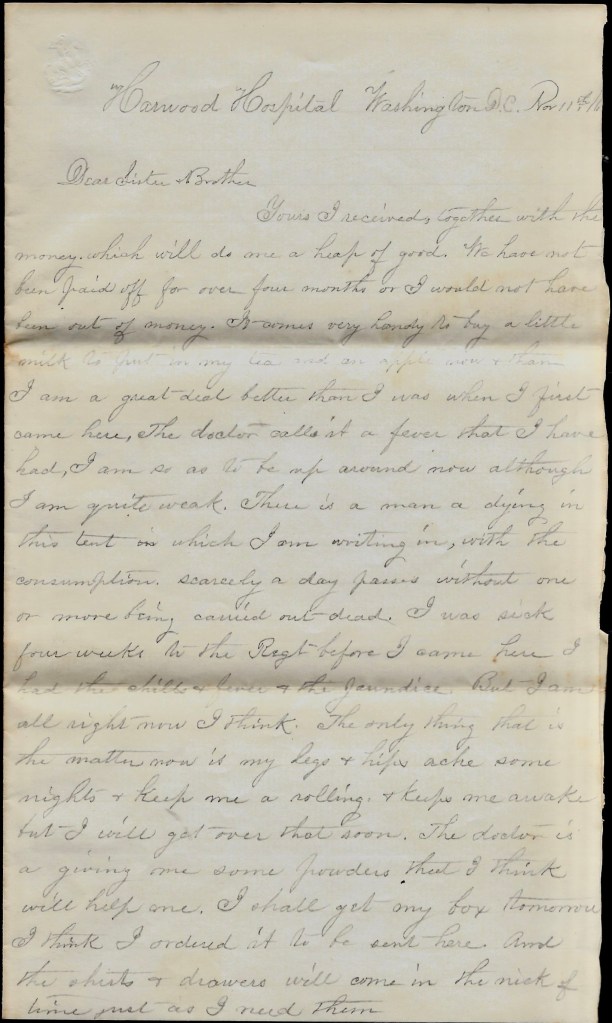 Harwood Hospital Washington D.C. Nov 11th
Dear Sister & Brother
Yours I received, together with the
money. which will do me a heap of good. We have not
been paid off for over four months or I would not have
been out of money. It comes very handy to buy a little
milk to put in my tea and an apple now & than
I am a great deal better than I was when I first
came here, The doctor calls it a fever that I have
had, I am so as to be up around now although
I am quite weak. There is a man a dying in
this tent in which I am writing in, with the
consumption. scarcely a day passes without one
or more being carried out dead. I was sick
four weeks to the Regt before I came here I
had the chills & fever & the Jaundice. But I am
all right now I think. The only thing that is
the matter now is my legs & hips ache some
nights & keep me a rolling. & keeps me awake
but I will get over that soon. The doctor is
a giving me some powders that I think
will help me. I shall get my box tomorrow
I think I ordered it to be sent here. And
the shirts & drawers will come in the nick of
time just as I need them